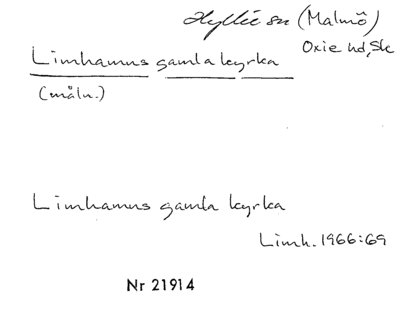 Hyllie sn (Malmö)
Oxie hd, Sk
Limhamns gamla kyrka
(måln.)
Limhamns gamla kyrka
Limh. 1966:69
Nr 21914